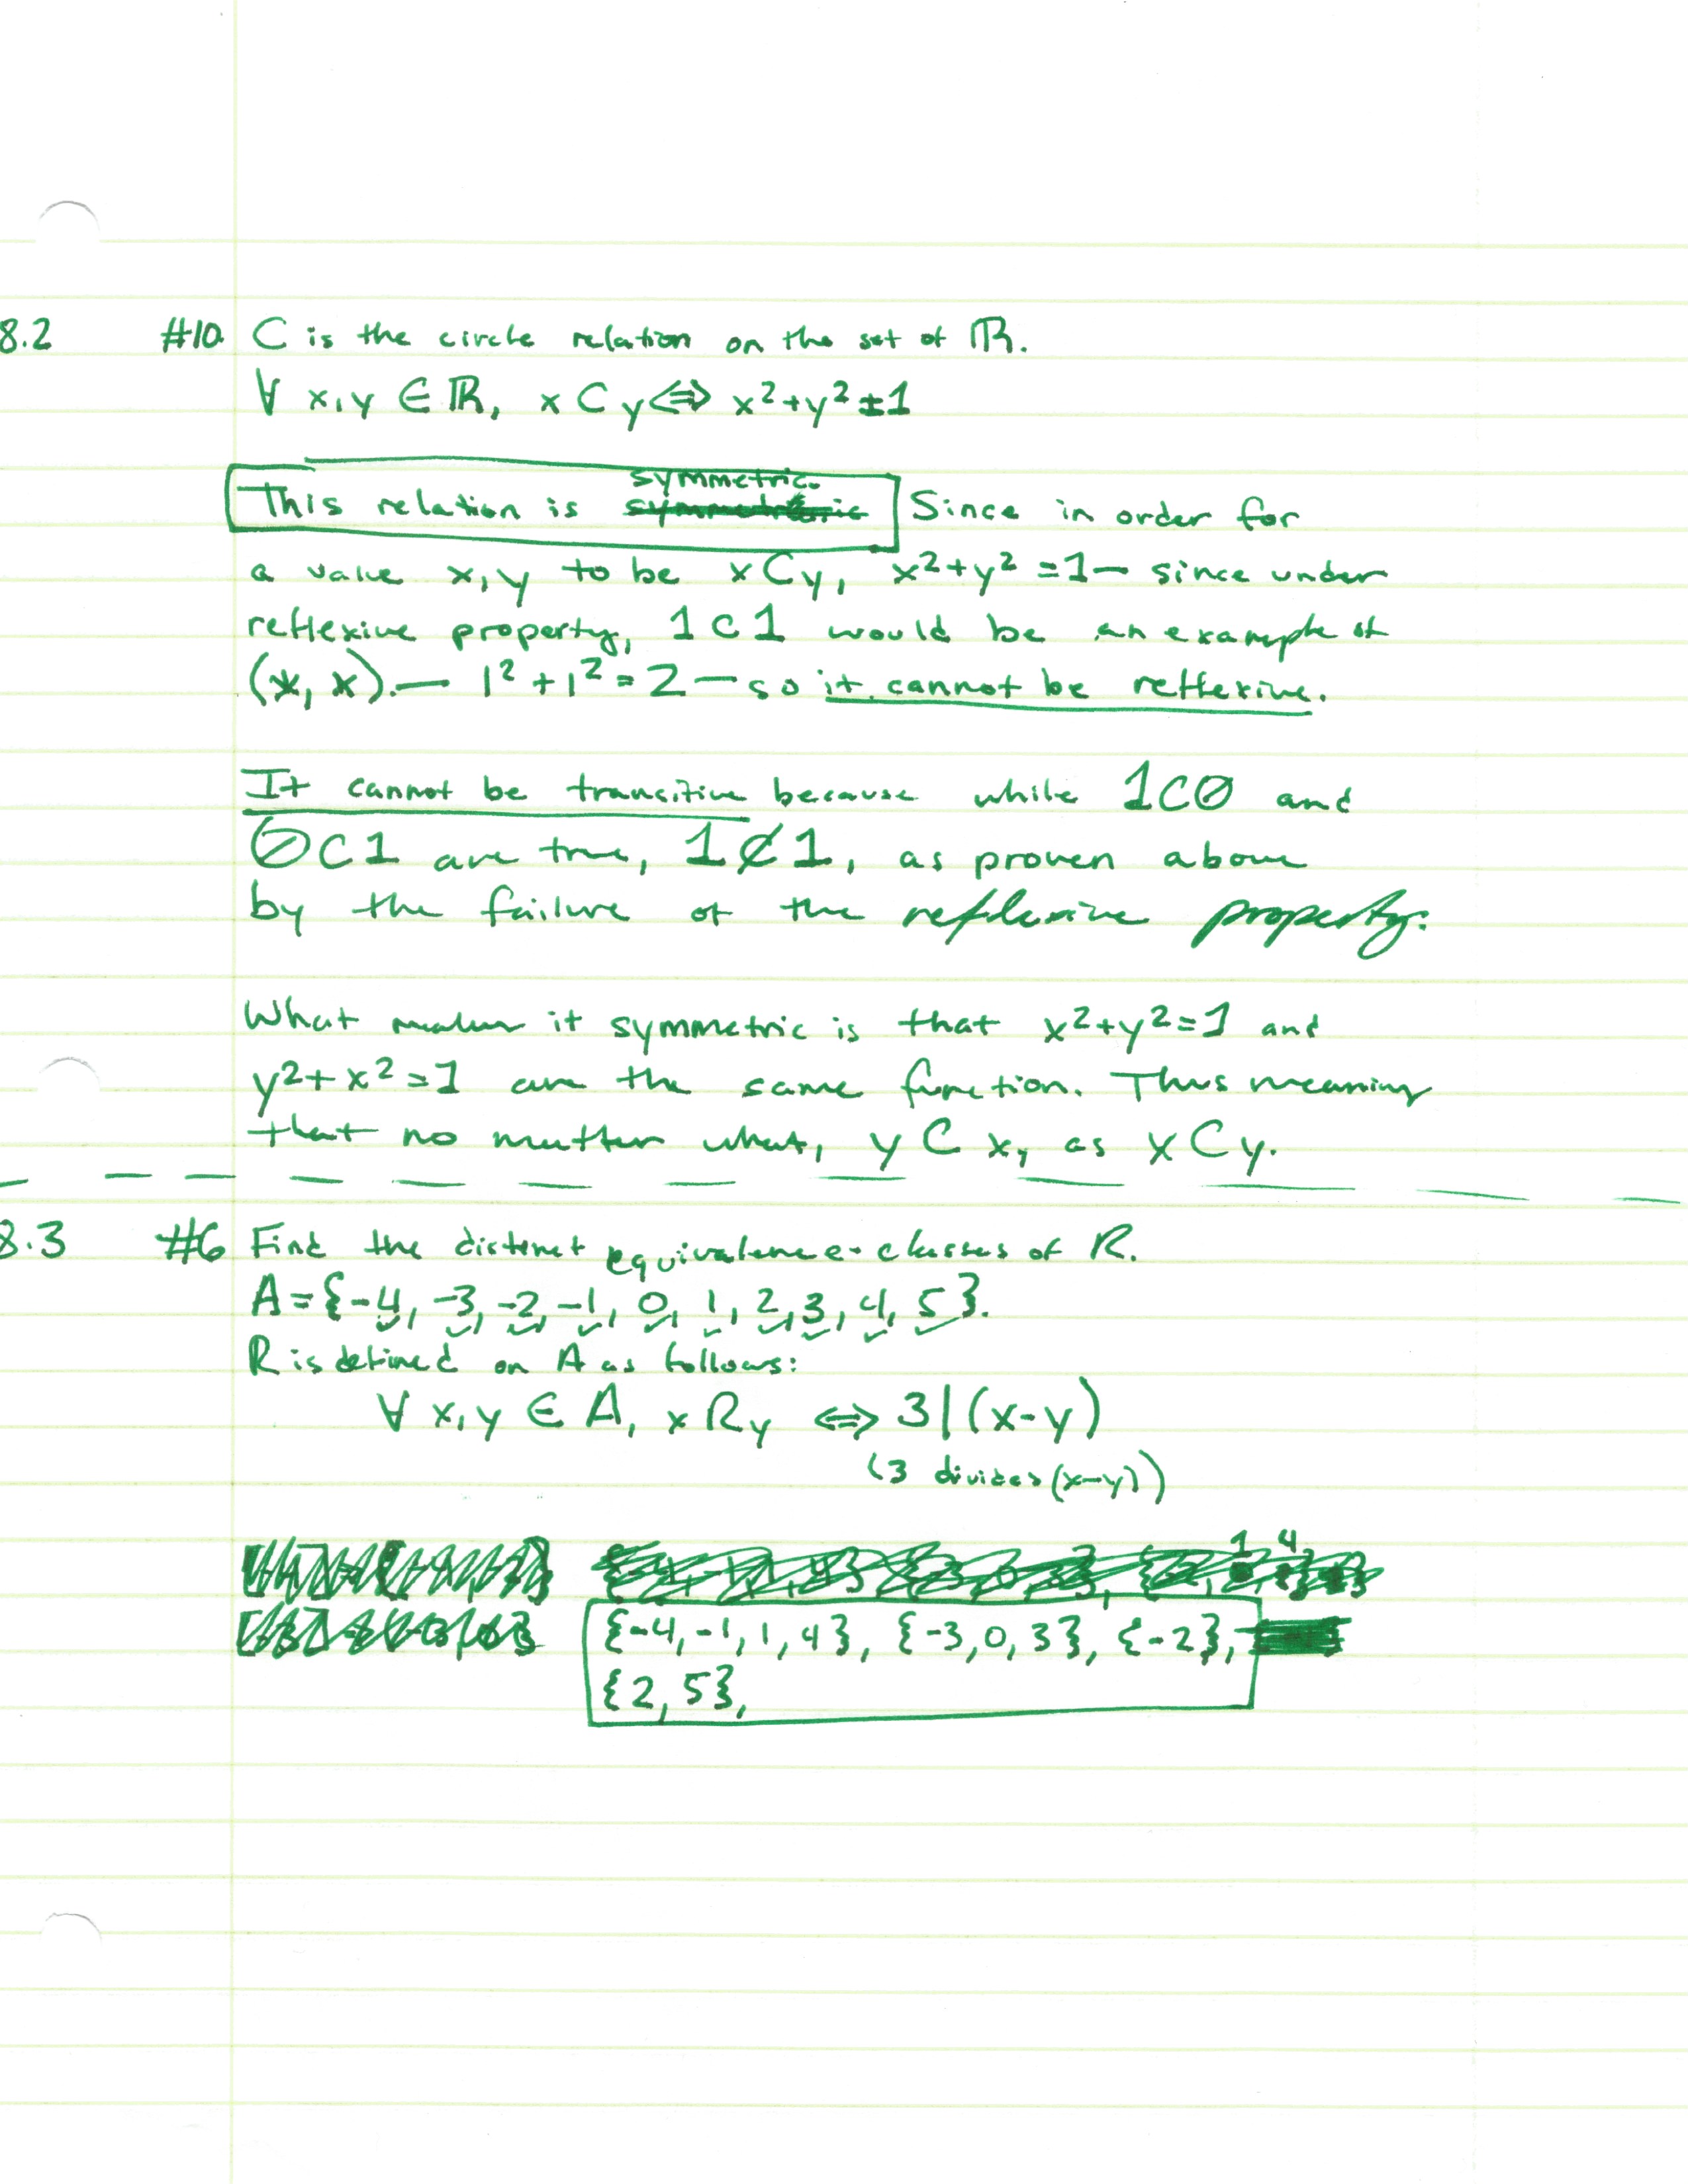 8.2 #10. C is the circle relation on the set of ℝ.
∀ x,y ∈ ℝ, x C y ⟺ x²+y² = 1
symmetric.
This relation is Since in order for
a value x,y to be x C y, x²+y² = 1 — since under
reflexive property, 1 C 1 would be an example of
(x, x). — 1²+1² = 2 — so it cannot be reflexive.
It cannot be transitive because while 1 C 0 and
0 C 1 are true, 1 ₵ 1, as proven above
by the failure of the reflexive property.
What makes it symmetric is that x²+y²=1 and
y²+x²=1 are the same function. Thus meaning
that no matter what, y C x, as x C y.
8.3 #6 Find the distinct equivalence classes of R.
A = {-4, -3, -2, -1, 0, 1, 2, 3, 4, 5}.
R is defined on A as follows:
∀ x,y ∈ A, x R y ⟺ 3|(x-y)
(3 divides (x-y))
{-4, -1, 1, 4}, {-3, 0, 3}, {-2},
{2, 5},